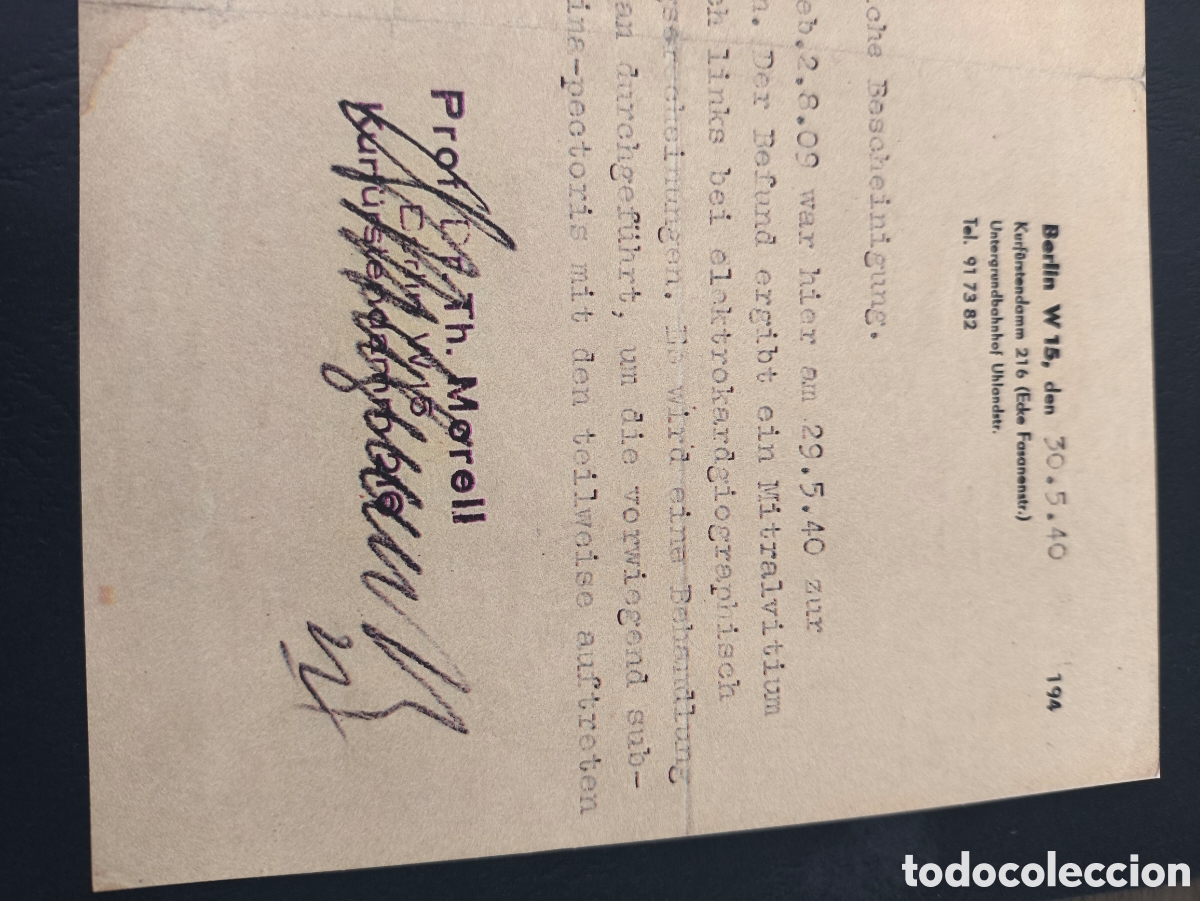 Berlin W 15, den 30.5.40 194
Kurfürstendamm 216 (Ecke Fasanenstr.)
Untergrundbahnhof Uhlandstr.
Tel. 91 73 82
che Bescheinigung.
eb.2.8.09 war hier am 29.5.40 zur
n. Der Befund ergibt ein Mitralvitium
ch links bei elektrokardgiographisch
gserscheinungen. Es wird eine Behandlung
an durchgeführt, um die vorwiegend sub-
ina-pectoris mit den teilweise auftreten
Prof Dr Th. Morell
Berlin W 15
Kurfürstendamm 216
todocoleccion